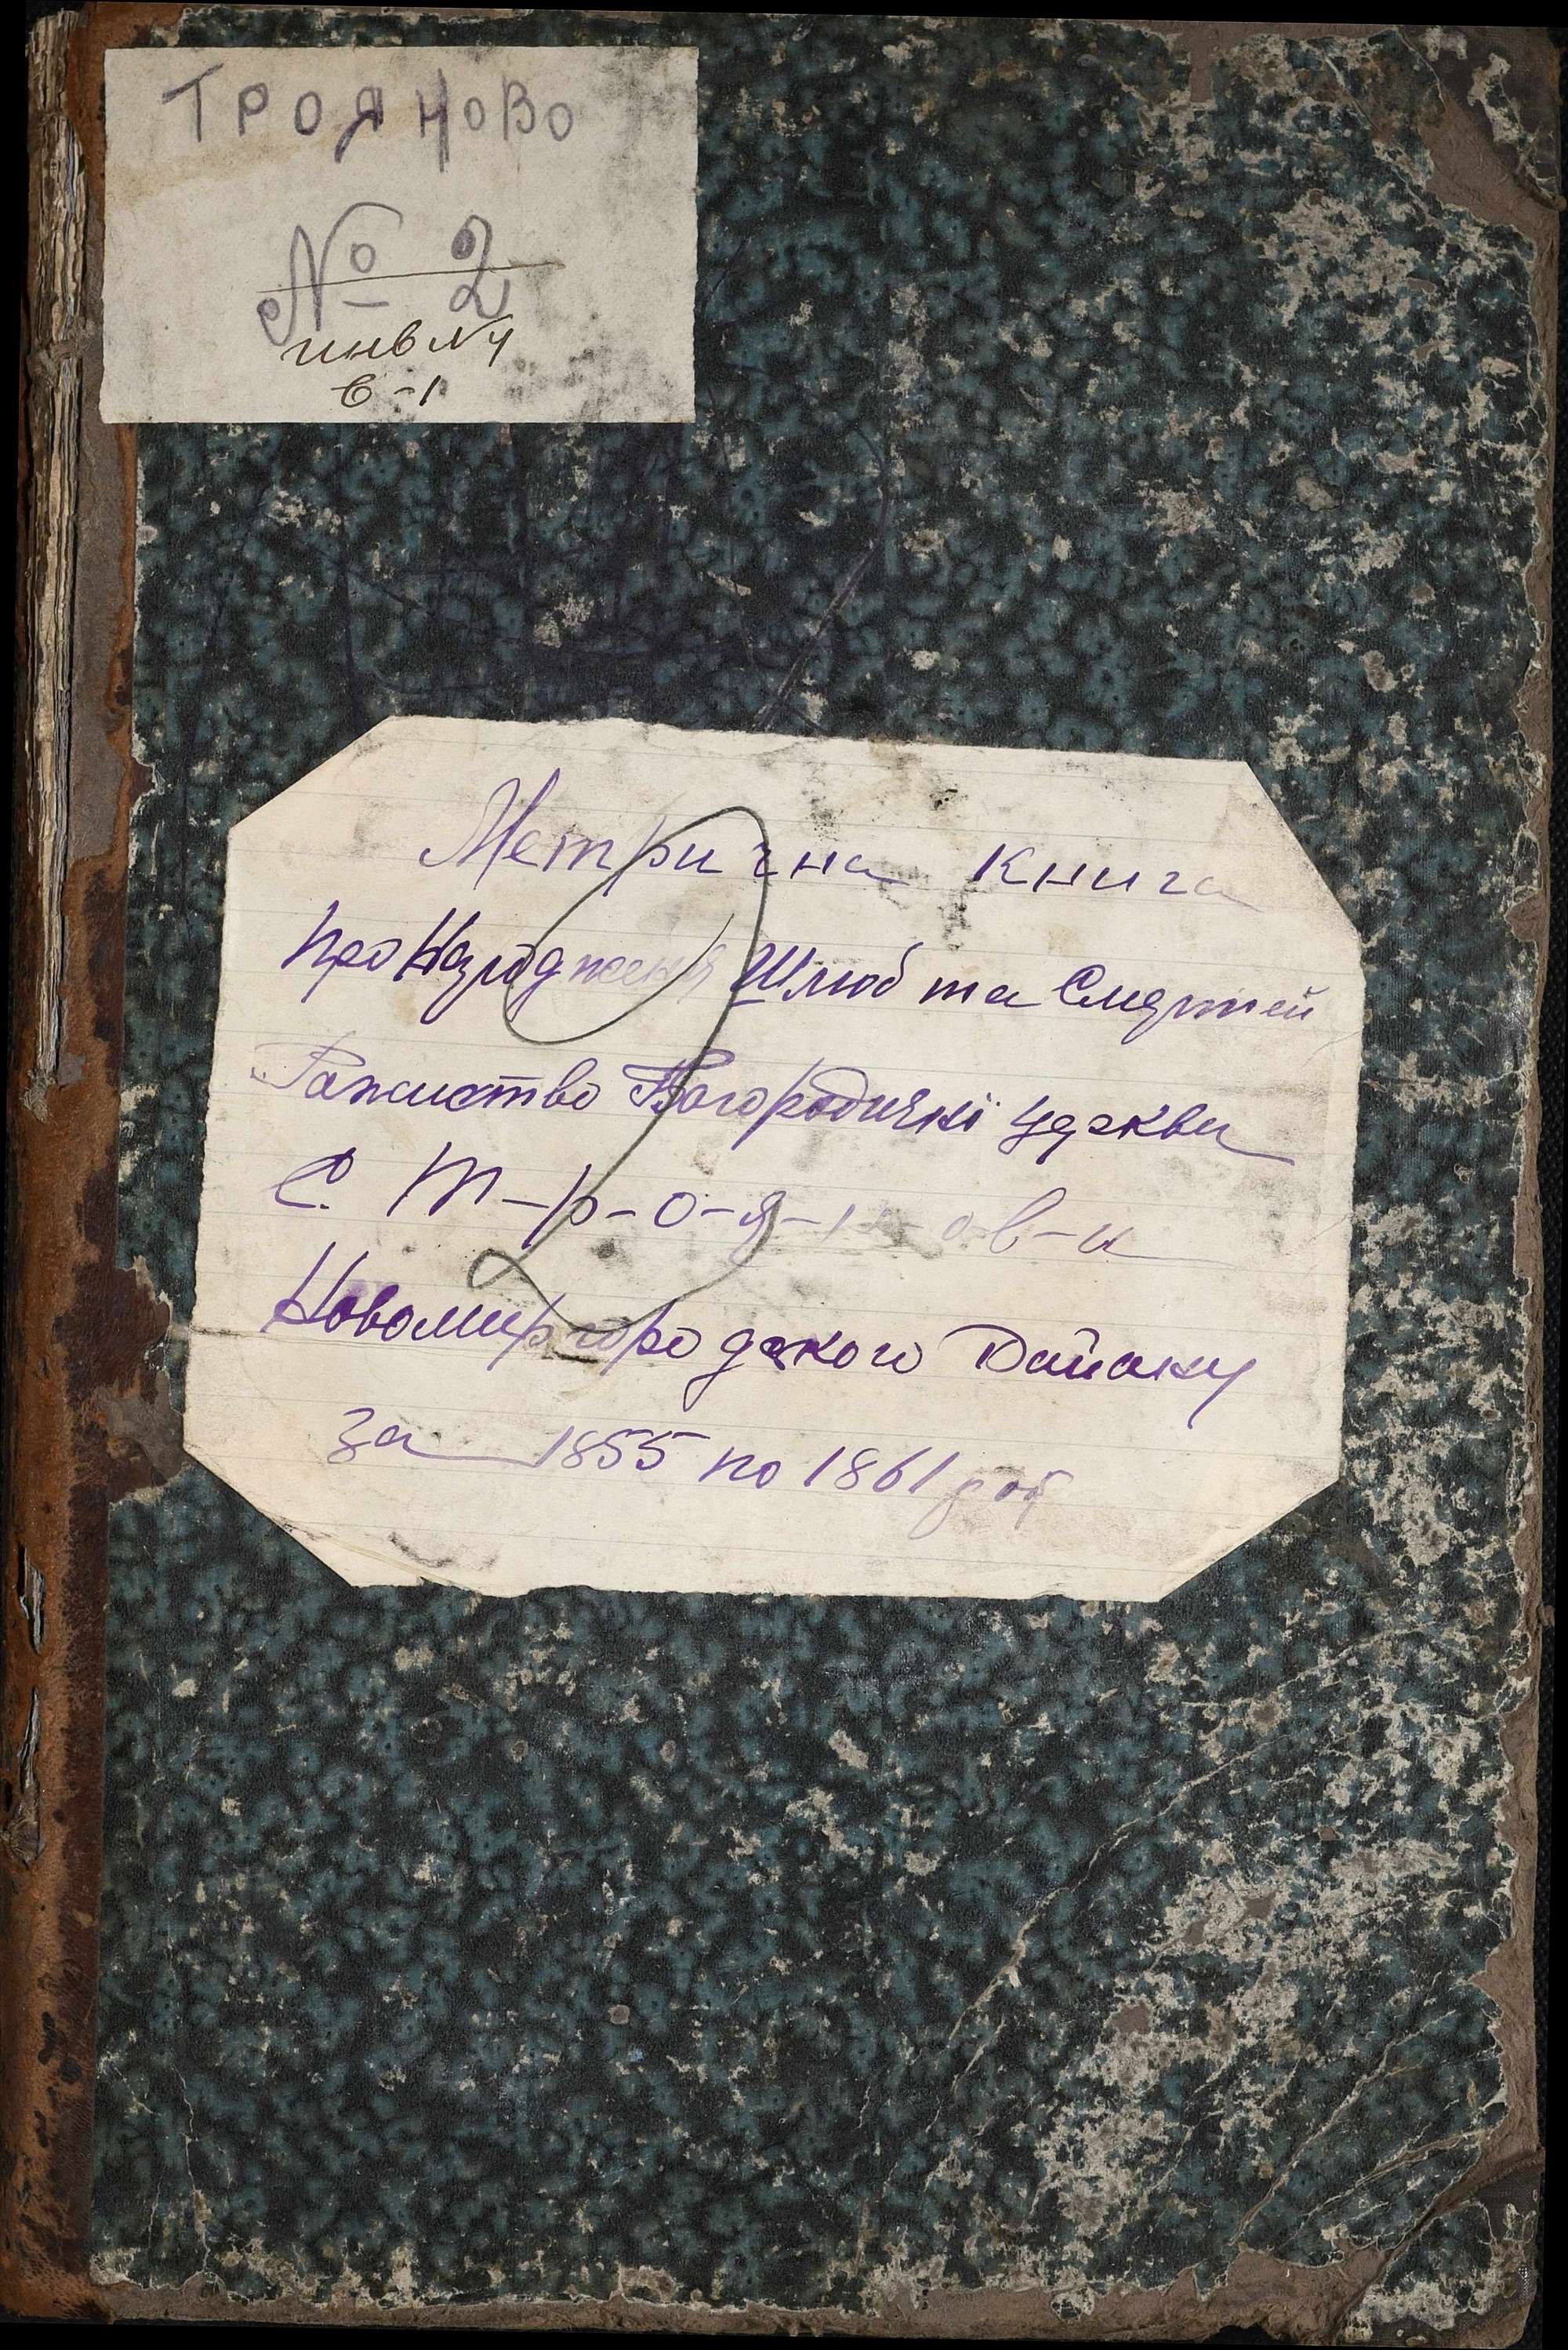 ТРОЯНОВО
№ 2
инв N 4
в-1
Метрична Книга
Про Народження Шлюб та Смертей
Рожиство Богородичні церкви
С. Т-р-о-я-н-ов-и
Новомиргородского Району
За 1855 по 1861 роб